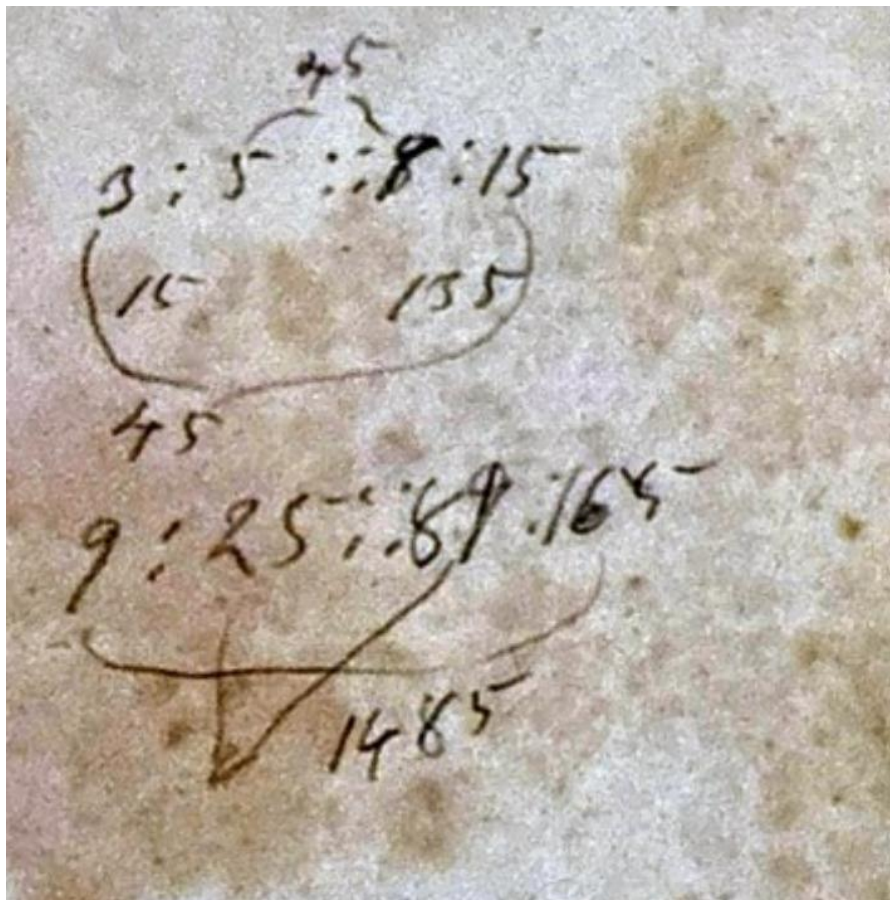 45
3 : 5 :: 8 : 15
15 135
45
9 : 25 :: 89 : 165
1485